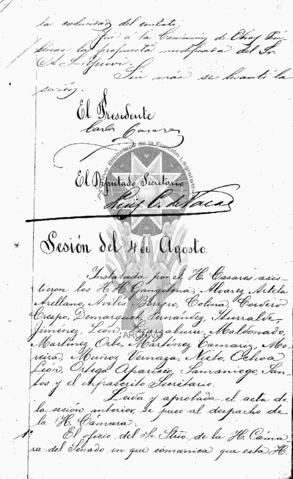 la caducidad del contrato.
Pasó a la Comisión de Obras Pú-
blicas la propuesta modificada del Sr.
Sin más se levantó la
sesión.
El Presidente
Carlos Casares
El Diputado Secretario
Luis C. de Vaca
Sesión del 4 de Agosto
Instalada por el H. Casares asis-
tieron los H.H. Gangotena, Alvarez Arteta
Arellano, Avilés, Borrero, Colina, Cordero
Crespo, Demarquet, Fernández, Iturralde
Jiménez, León, Maldonado,
Martínez Orbe, Martínez Tamariz, Mo-
reira, Muñoz Vernaza, Nieto, Ochoa
León, Ortega, Aparicio, Samaniego, San-
tos y el infrascrito Secretario.
Leída y aprobada el acta de
la sesión anterior, se puso al despacho de
la H. Cámara:
1º El oficio del Sr. Strio. de la H. Cáma-
ra del Senado en que comunica que esta H.